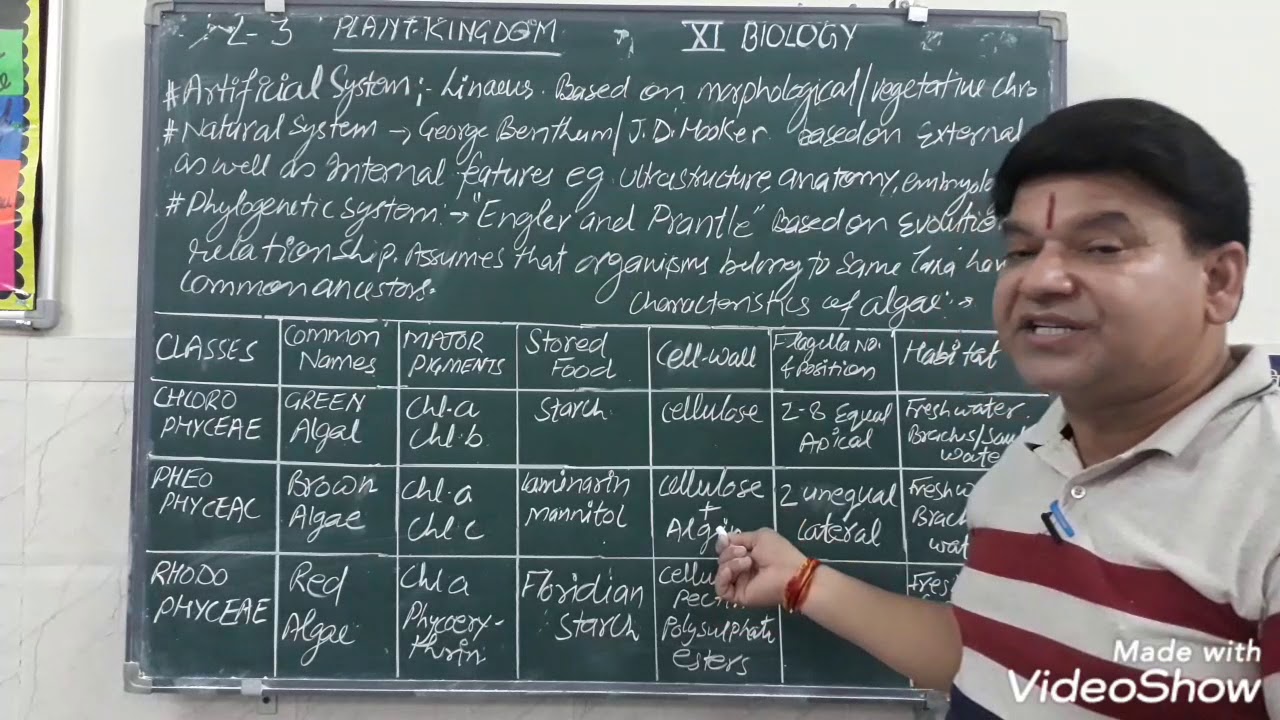 L-3 PLANT-KINGDOM XI BIOLOGY
# Artificial System:- Linaeus. Based on morphological/vegetative chro
# Natural System → George Benthum/J.D. Hooker based on External
as well as Internal features eg. ultrastructure, anatomy, embryolo
# Phylogenetic System:→ "Engler and Prantle" Based on Evolutio
relationship. Assumes that organisms belong to same Taxa hav
common ancestors.
Characteristics of algae:→
CLASSES Common Names MAJOR PIGMENTS Stored Food Cell-wall Flagella No. & Position Habitat
CHLORO PHYCEAE GREEN Algal Chl.a Chl.b Starch. cellulose 2-8 Equal Apical Freshwater. Brachis/Sal Water
PHEO PHYCEAC Brown Algae Chl.a Chl c laminarin mannitol cellulose + Algin 2 unequal lateral Freshw Brac wat
RHODO PHYCEAE Red Algae Chl a Phycoery- thrin Floridian Starch cellu Pectin Polysulphate esters Fres
Made with
VideoShow